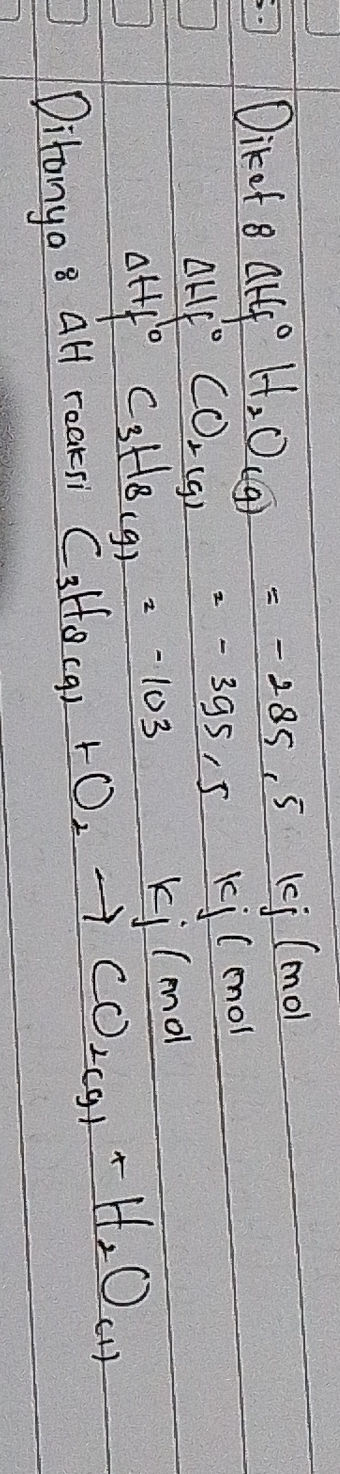 5.
Diket : ΔHf° H₂O(g) = -285,5 kj/mol
ΔHf° CO₂(g) = -395,5 kj/mol
ΔHf° C₃H8(g) = -103 kj/mol
Ditanya : ΔH reaksi C₃H8(g) + O₂ → CO₂(g) + H₂O(l)